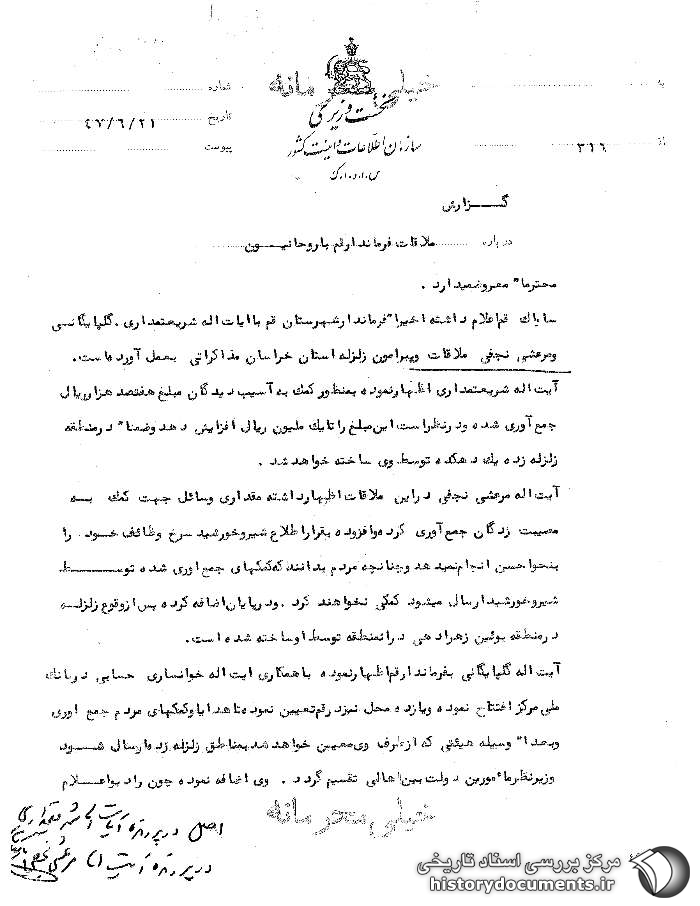 خیلی محرمانه
نخست وزیری
سازمان اطلاعات و امنیت کشور
س.ا.و.ا.ک
به
از ۳۱۶
شماره
تاریخ ۴۷/۶/۲۱
پیوست
گزارش
درباره ملاقات فرماندارقم باروحانیون
محترما" معروضمیدارد .
ساواک قم اعلام داشته اخیرا" فرماندارشهرستان قم باآیات اله شریعتمداری ، گلپایگانی
ومرعشی نجفی ملاقات وپیرامون زلزله استان خراسان مذاکراتی بعمل آورده است.
آیت اله شریعتمداری اظهارنموده بمنظور کمک به آسیب دیدگان مبلغ هفتصد هزار ریال
جمع آوری شده ودرنظراست این مبلغ راتایك ملیون ریال افزایش دهد وضمنا" درمنطقه
زلزله زده یك دهکده توسط وی ساخته خواهد شد .
آیت اله مرعشی نجفی دراین ملاقات اظهارداشته مقداری وسائل جهت کمك به
مصیبت زدگان جمع آوری کرده وافزوده بقراراطلاع شیروخورشید سرخ وظائف خود را
بنحواحسن انجام نمیدهد وچنانچه مردم بدانند که کمکهای جمع آوری شده توسط
شیروخورشید ارسال میشود کمکی نخواهند کرد . ودرپایان اضافه کرده پس ازوقوع زلزله
درمنطقه بوئین زهرا دهی درآنمنطقه توسط اوساخته شده است.
آیت اله گلپایگانی بفرماندارقم اظهارنموده باهمکاری ایت اله خوانساری حسابی دربانك
ملی مرکز افتتاح نموده ویازده محل نیزدرقم تعیین نموده تاهدایا وکمکهای مردم جمع اوری
وبعدا" وسیله هیئتی که ازطرف وی معین خواهد شد بمناطق زلزله زده ارسال شود
وزیرنظرمامورین دولت بین اهالی تقسیم گردد . وی اضافه نموده چون رادیو اعلام
خیلی محرمانه
اصل در پرونده آیت اله شریعتمداری
در پرونده آیت اله مرعشی نجفی
مرکز بررسی اسناد تاریخی
historydocuments.ir